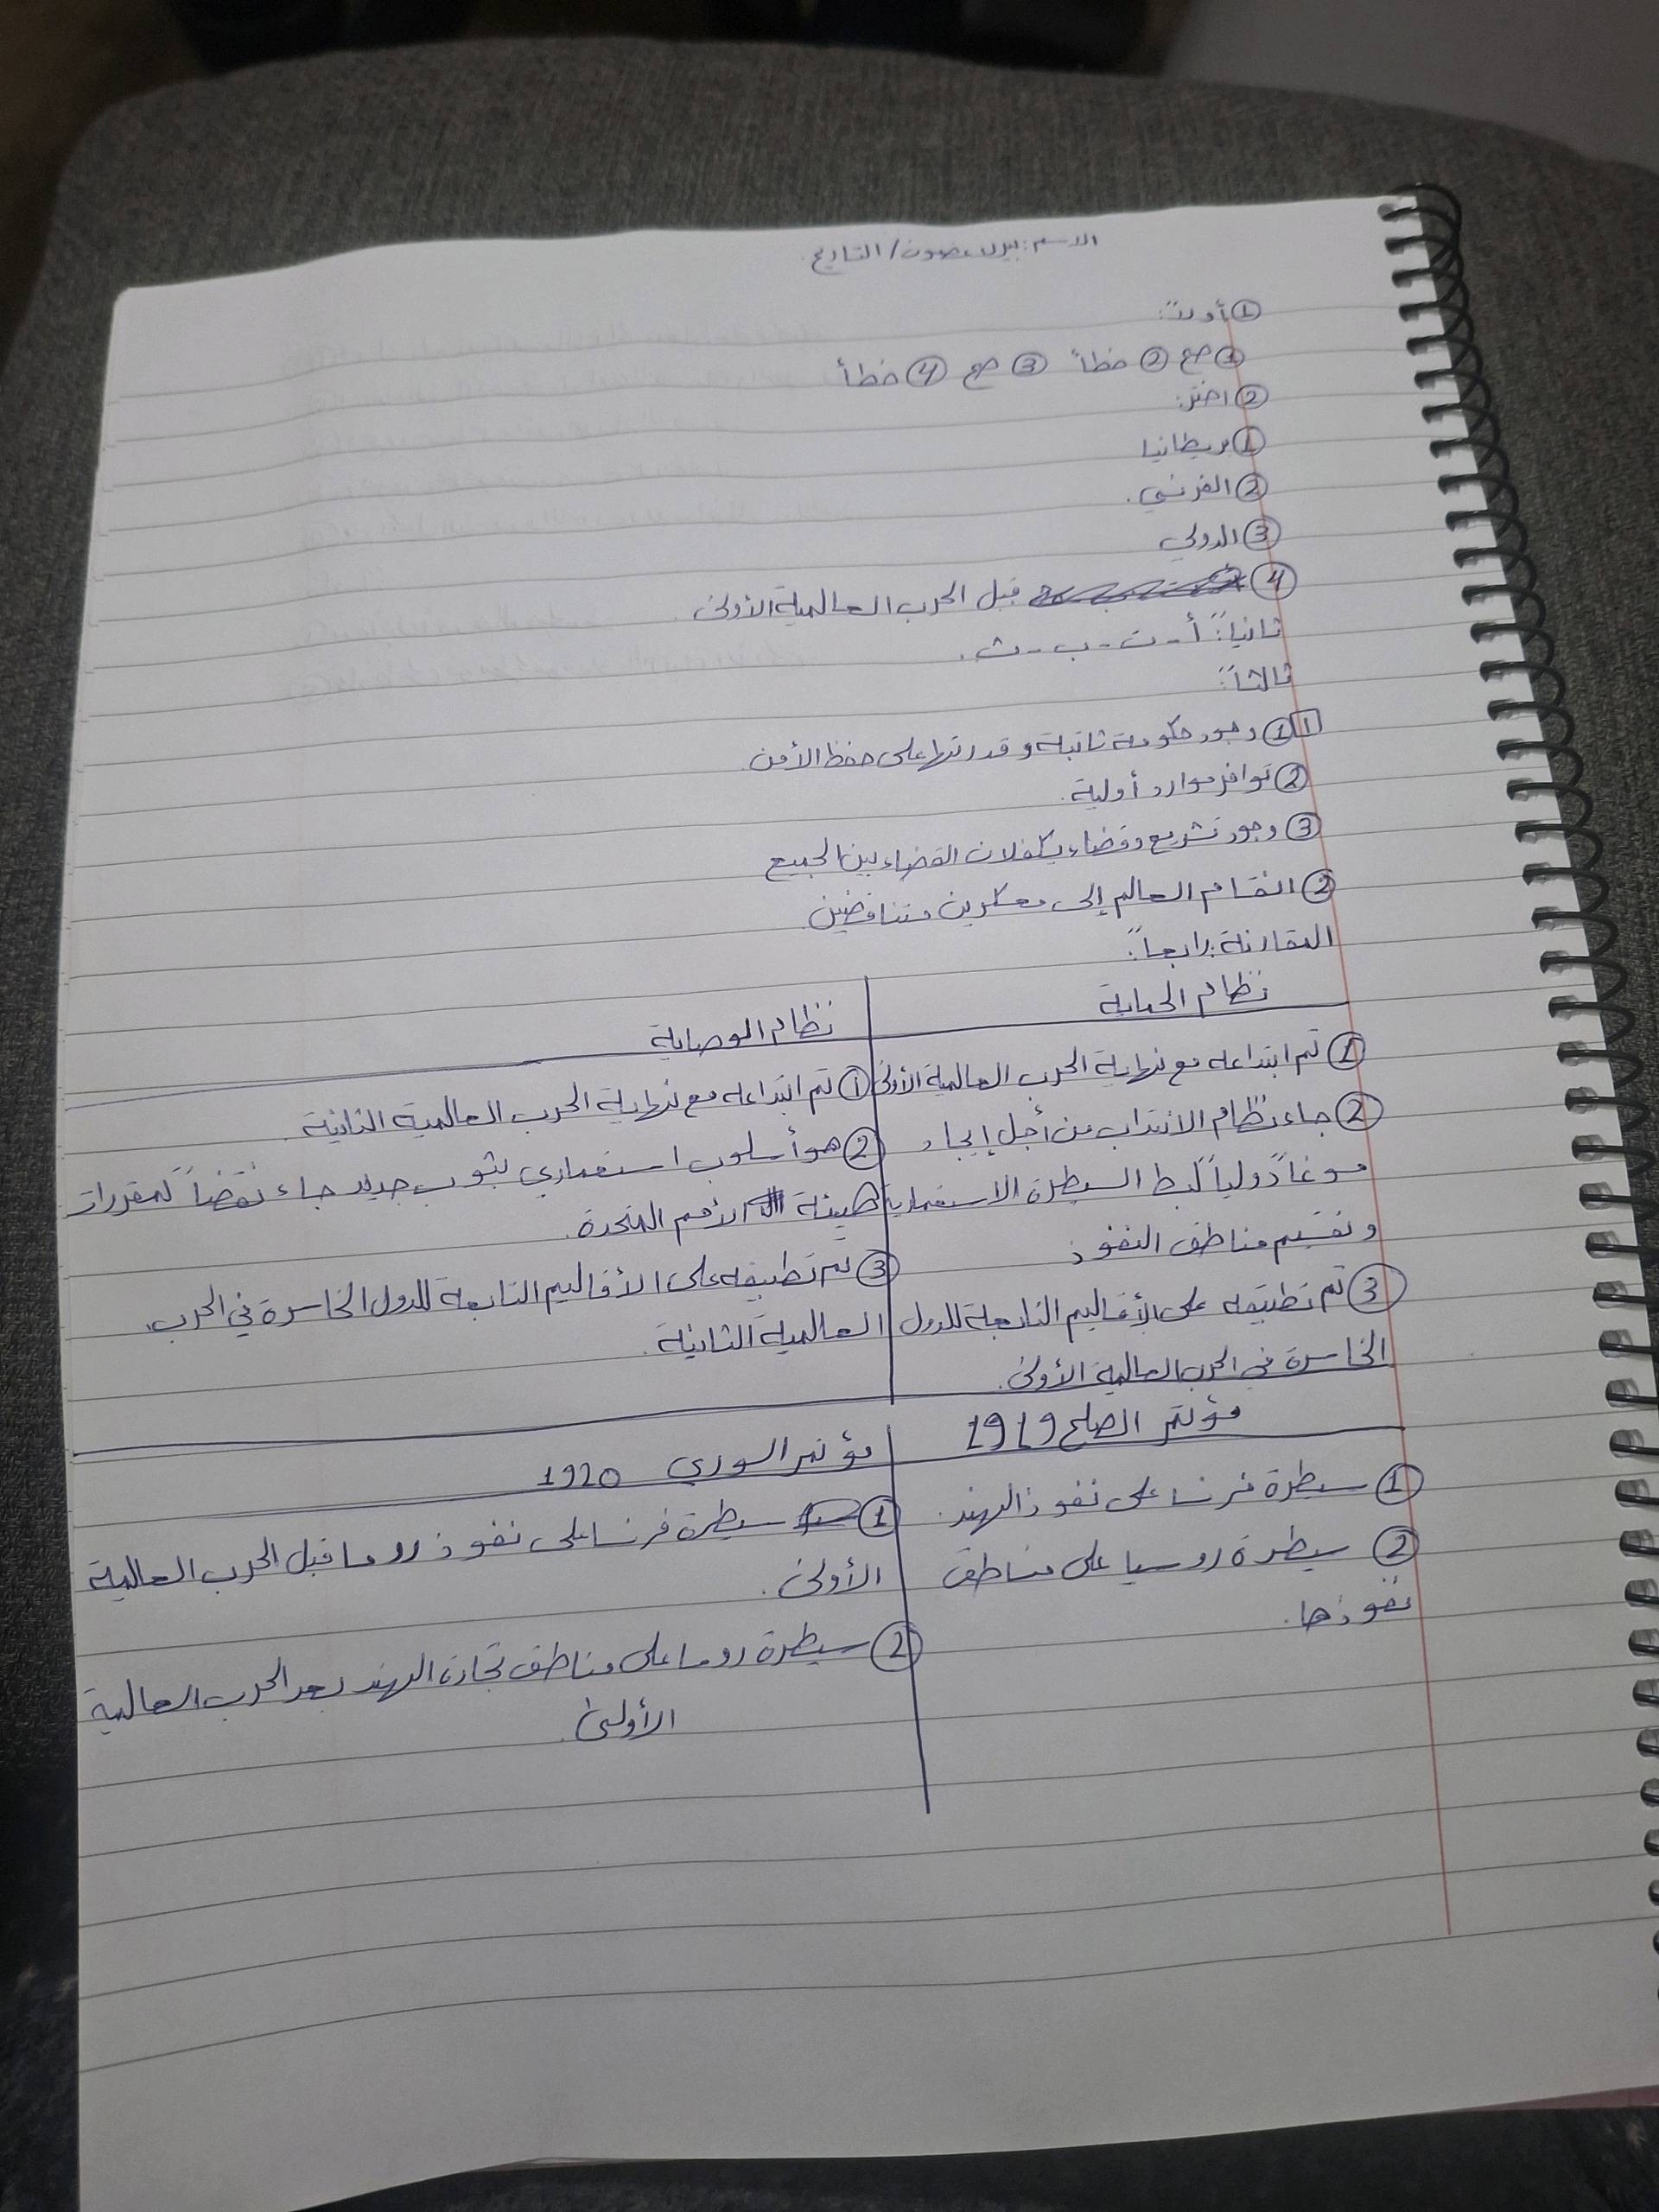 الاسم: بيلا غصون / التاريخ
① أولاً:
① صح ② خطأ ③ صح ④ خطأ
② اختر:
① بريطانيا
② الفرنسي.
③ الدولي
④ قبل الحرب العالمية الأولى.
ثانياً: أ - ت - ب - ث.
ثالثاً:
1 ① وجود حكومة ثابتة وقدرتها على حفظ الأمن
② توافر موارد أولية.
③ وجود تشريع وقضاء يكفلان القضاء بين الجميع
② انقسام العالم إلى معسكرين متناقضين
المقارنة: رابعاً:
نظام الحماية
نظام الوصاية
① تم ابتداعه مع نهاية الحرب العالمية الأولى
② جاء نظام الانتداب من أجل إيجاد
مسوغاً دولياً لبسط السيطرة الاستعمارية
وتقسيم مناطق النفوذ
③ تم تطبيقه على الأقاليم التابعة للدول
الخاسرة في الحرب العالمية الأولى.
① تم ابتداعه مع نهاية الحرب العالمية الثانية.
② هو أسلوب استعماري بثوب جديد جاء نقضاً لمقررات
هيئة الأمم المتحدة.
③ تم تطبيقه على الأقاليم التابعة للدول الخاسرة في الحرب
العالمية الثانية.
مؤتمر الصلح 1919
مؤتمر السوري 1920
① سيطرة فرنسا على نفوذ الهند.
② سيطرة روسيا على مناطق
نفوذها.
① سيطرة فرنسا على نفوذ روما قبل الحرب العالمية
الأولى.
② سيطرة روما على مناطق تجارة الهند بعد الحرب العالمية
الأولى.